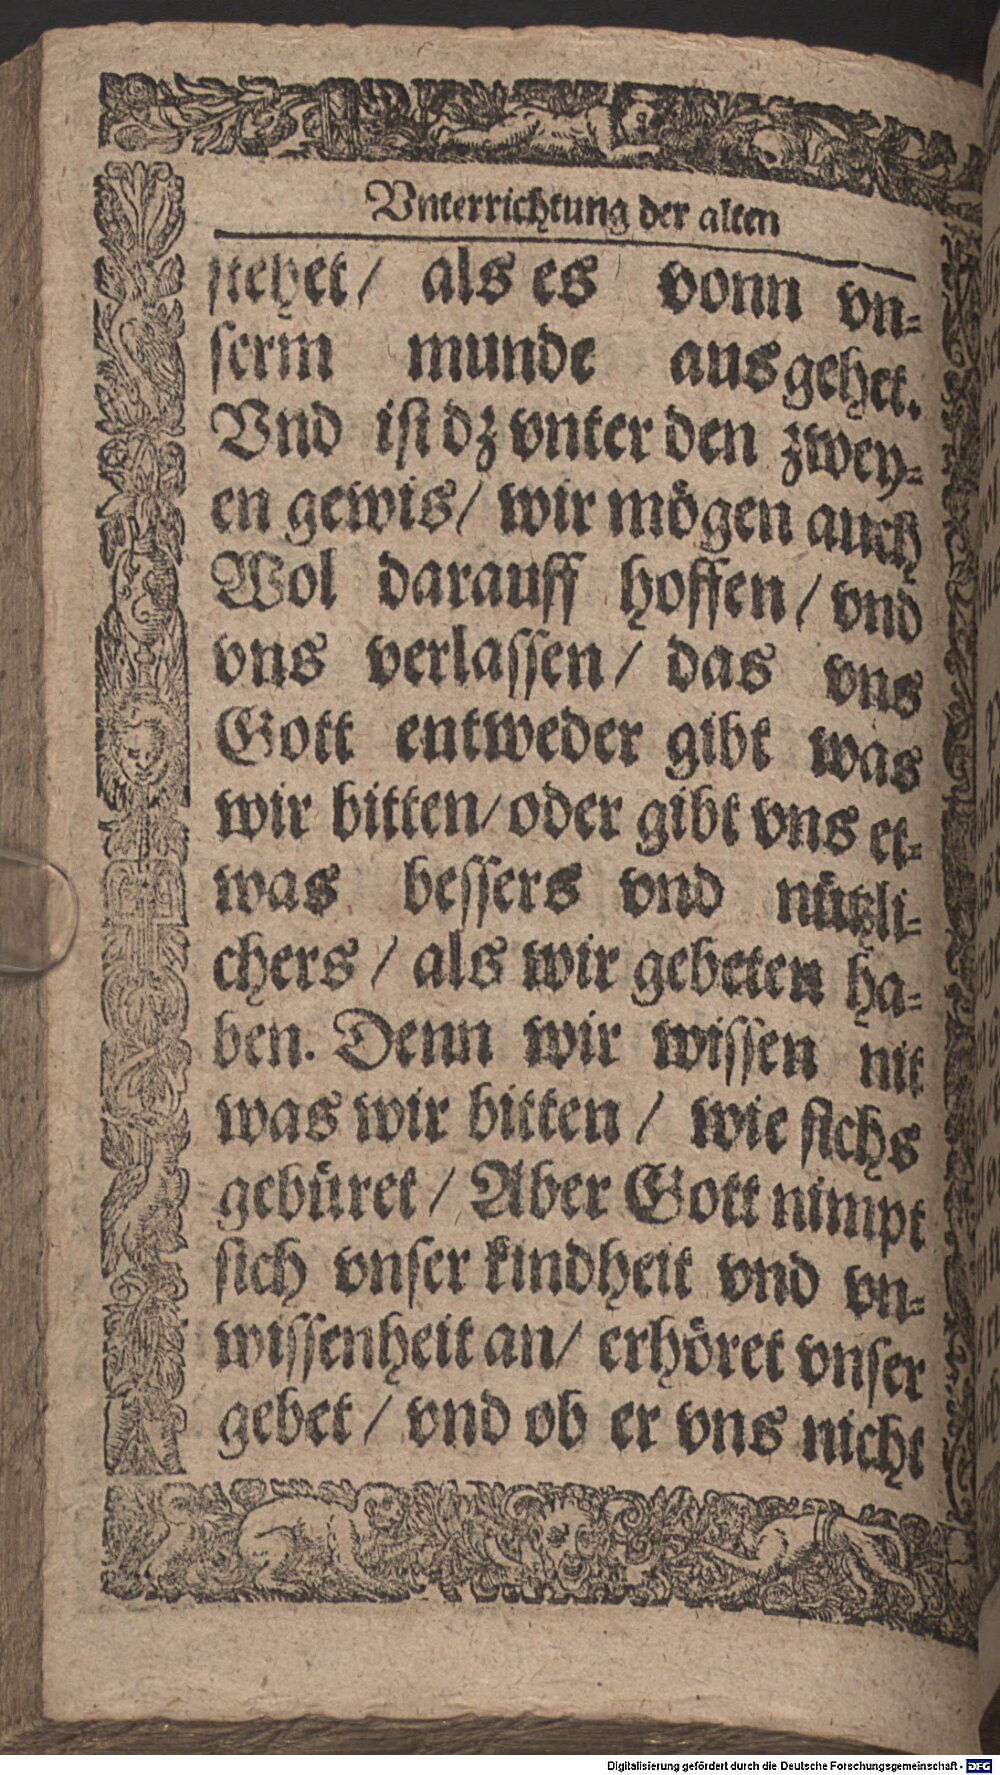 Vnterrichtung der alten
stehet / als es vonn vn-
serm munde ausgehet.
Vnd ist dz vnter den zwey-
en gewis / wir mögen auch
Wol darauff hoffen / vnd
vns verlassen / das vns
Gott entweder gibt was
wir bitten / oder gibt vns et-
was bessers vnd nützli-
chers / als wir gebeten ha-
ben. Denn wir wissen nit
was wir bitten / wie sichs
gebüret / Aber Gott nimpt
sich vnser kindheit vnd vn-
wissenheit an / erhöret vnser
gebet / vnd ob er vns nicht
Digitalisierung gefördert durch die Deutsche Forschungsgemeinschaft - DFG